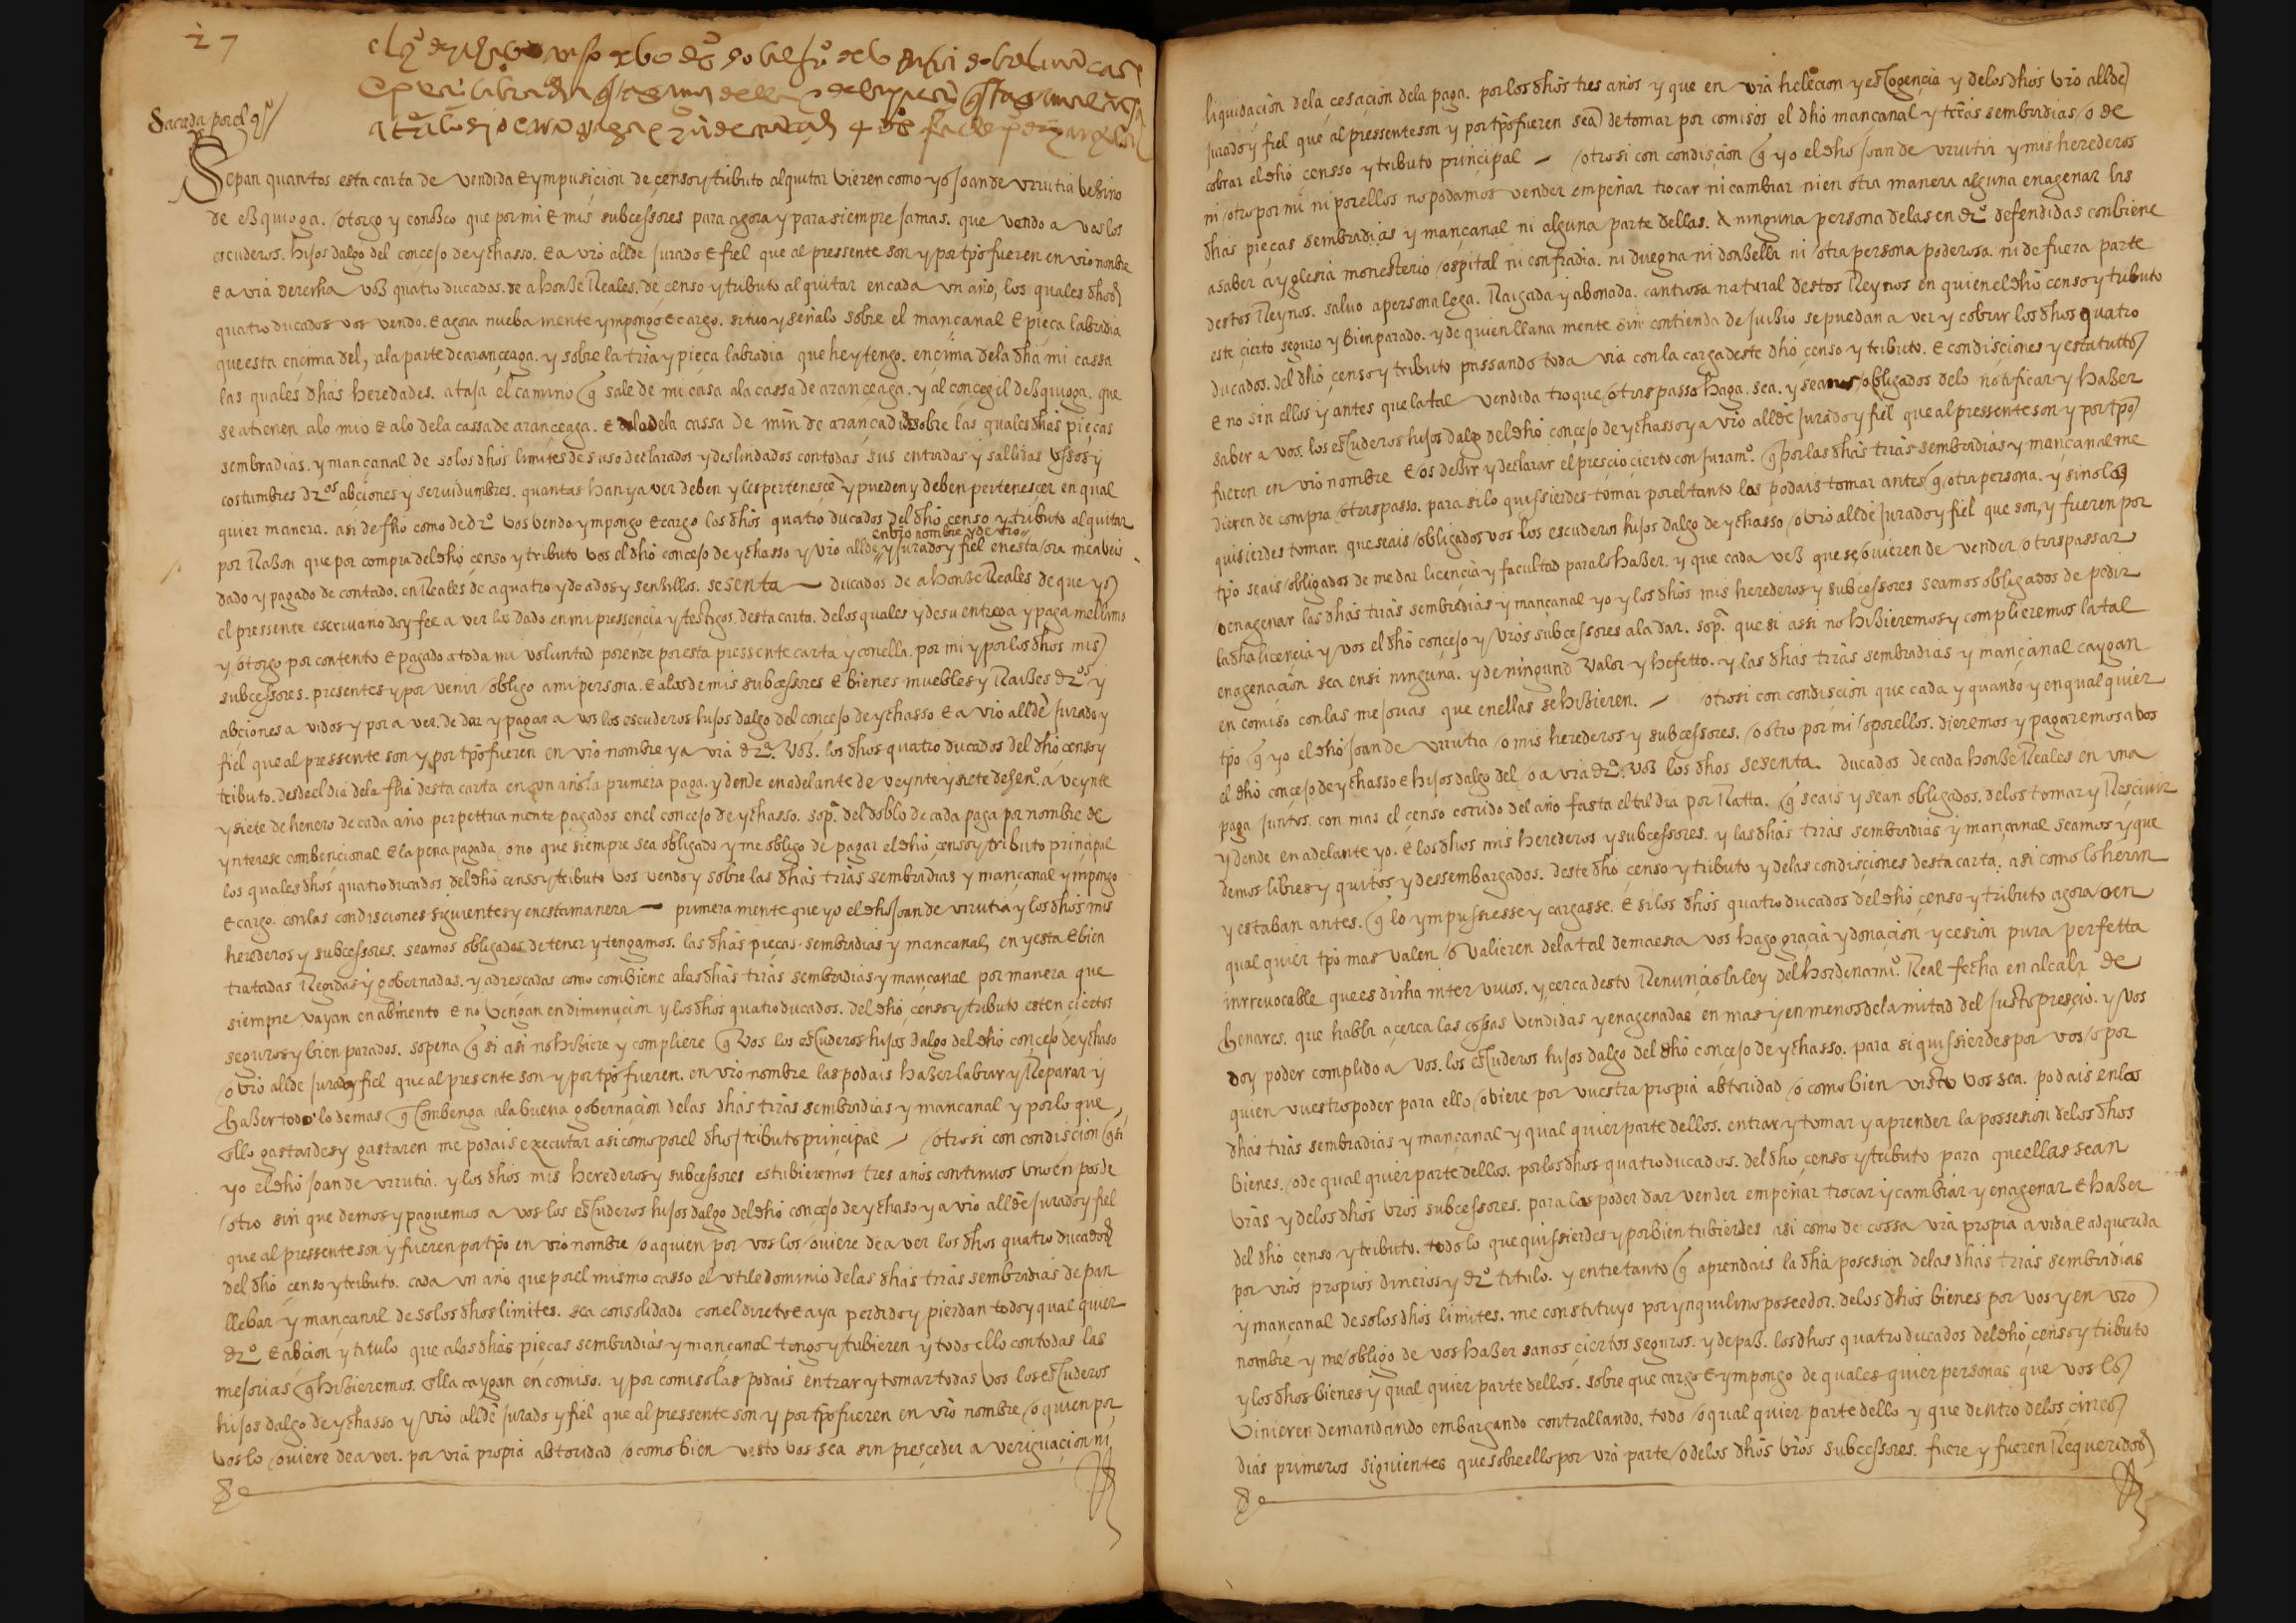 27
Sacada por el q°
Sepan quantos esta carta de vendida e ympusicion de censo y tributo al quitar vieren como yo Joan de urrutia vezino
de ezquioga. otorgo y conozco que por mi e mis subcessores para agora y para siempre jamas. que vendo a vos los
escuderos. hijos dalgo del conçejo de ychasso. e a vro allde jurado e fiel que al pressente son y por tpo fueren en vro nonbre
e a vra derecha voz quatro ducados. de a honze Reales. de çenso y tributo al quitar en cada un año, los quales dhos
quatro ducados vos vendo. e agora nueba mente ympongo e cargo. situo y señalo sobre el mançanal e pieça labradia
que esta ençima del, a la parte de arançeaga. y sobre la trra y pieça labradia que he y tengo. ençima de la dha mi cassa
las quales dhas heredades. ataja el camino q sale de mi casa a la cassa de arançeaga. y al concegil dezquioga. que
se atienen a lo mio e a lo de la cassa de arançeaga. e de la cassa de min de arançadi sobre las quales dhas pieças
sembradias. y mançanal de so los dhos limites de suso declarados y deslindados con todas sus entradas y sallidas ussos y
costumbres dros abçiones y seruidumbres. quantas han y a ver deben y les pertenesçe y pueden y deben pertenesçer en qual
quier manera. asi de fho como de dro vos vendo ympongo e cargo los dhos quatro ducados del dho censo y tributo al quitar
en vro nombre y de vro
por Razon que por compra del dho çenso y tributo vos el dho conçejo de ychasso y vro allde y jurado y fiel en esta ora me aveis
dado y pagado de contado. en Reales de a quatro y de a dos y senzillos. sesenta ducados de a honze Reales de que yo
el pressente escriuano doy fee a ver los dado en mi pressençia y testigos desta carta. de los quales y de su entrega y paga me llamo
y otorgo por contento e pagado a toda mi voluntad por ende por esta pressente carta y con ella. por mi y por los dhos mis
subcessores. presentes y por venir obligo a mi persona. e a los de mis subcessores e bienes muebles y Raizes dros y
abçiones a vidos y por a ver. de dar y pagar a vos los escuderos hijos dalgo del conçejo de ychasso e a vro allde jurado y
fiel que al pressente son y por tpo fueren en vro nombre y a vra dra. voz. los dhos quatro ducados del dho censo y
tributo. desde el dia de la fha desta carta en un año la primera paga. y dende en adelante de veynte y siete de hen°. a veynte
y siete de henero de cada año perpettua mente pagados en el conçejo de ychasso. sop°. del doblo de cada paga por nombre de
ynterese combençional e la pena pagada o no que siempre sea obligado y me obligo de pagar el dho censo y tributo prinçipal
los quales dhos quatro ducados del dho censo y tributo vos vendo y sobre las dhas trras sembradias y mançanal ympongo
e cargo. con las condisçiones siguientes y en esta manera primera mente que yo el dho Joan de urrutia y los dhos mis
herederos y subcessores. seamos obligados de tener y tengamos. las dhas pieças. sembradias y mancanal, en yesta e bien
tratadas Regidas y gobernadas. y adresçadas como combiene a las dhas trras sembradias y mançanal por manera que
siempre vayan en abmento e no vengan en diminuçion y los dhos quatro ducados. del dho çenso y tributo esten çiertos
seguros y bien parados. so pena q si asi no hiziere y compliere q vos los escuderos hijos dalgo del dho conçejo de ychaso
o vro allde jurado y fiel que al presente son y por tpo fueren. en vro nombre las podais hazer labrar y Reparar y
hazer todo lo demas q combenga a la buena gobernaçion de las dhas trras sembradias y mancanal y por lo que
ello gastardes y gastaren me podais executar asi como por el dho tributo prinçipal otro si con condisçion q si
yo el dho Joan de urrutia. y los dhos mis herederos y subcessores estubieremos tres años continuos uno en pos de
otro sin que demos y paguemos a vos los escuderos hijos dalgo del dho conçejo de ychaso y a vro allde jurado y fiel
que al pressente son y fueren por tpo en vro nombre o a quien por vos los ouiere de a ver los dhos quatro ducados
del dho çenso y tributo. cada un año que por el mismo casso el vtile dominio de las dhas trras sembradias de pan
llebar y mançanal de so los dhos limites. sea consolidado con el direto e aya perdido y pierdan todo y qual quier
dro e abçion y titulo que a las dhas pieças sembradias y mançanal tengo y tubieren y todo ello con todas las
mejorias q hizieremos. ella caygan en comiso. y por comiso las podais entrar y tomar todas vos los escuderos
hijos dalgo de ychasso y vro allde jurado y fiel que al pressente son y por tpo fueren en vro nombre o quien por
vos lo ouiere de a ver. por vra propia abtoridad o como bien visto vos sea sin presçeder a veriguaçion ni
liquidaçion de la çesaçion de la paga. por los dhos tres años y que en vra heleçion y escogençia y de los dhos vro allde
jurado y fiel que al pressente son y por tpo fueren sea de tomar por comisos el dho mançanal y trras sembradias o de
cobrar el dho censso y tributo prinçipal otro si con condisçion q yo el dho Joan de urrutia y mis herederos
ni otro por mi ni por ellos no podamos vender empeñar trocar ni cambiar ni en otra manera alguna enagenar las
dhas pieças sembradias y mançanal ni alguna parte dellas. a ninguna persona de las en dro defendidas conbiene
a saber a yglesia monesterio ospital ni confradia. ni duegna ni donzella ni otra persona poderosa. ni de fuera parte
destos Reynos. saluo a persona lega. Raigada y abonada. cantiosa natural destos Reynos en quien el dho censo y tributo
este çierto seguro y bien parado. y de quien llana mente sin contienda de juizio se puedan a ver y cobrar los dhos quatro
ducados. del dho censo y tributo passando toda via con la carga deste dho çenso y tributo. e condisçiones y estatuttos
e no sin ellos y antes que la tal vendida troque o traspasso haga. sea. y seamos obligados de lo notificar y hazer
saber a vos. los escuderos hijos dalgo del dho conçejo de ychasso y a vro allde jurado y fiel que al pressente son y por tpo
fueren en vro nombre e os dezir y declarar el presçio çierto con juram°. q por las dhas trras sembradias y mançanal me
dieren de compra o traspasso. para si lo quissierdes tomar por el tanto los podais tomar antes q otra persona. y si no los
quisierdes tomar. que seais obligados vos los escuderos hijos dalgo de ychasso o vro allde jurado y fiel que son, y fueren por
tpo seais obligados de me dar liçençia y facultad para lo hazer. y que cada vez que se ouieren de vender o traspassar
o enagenar las dhas trras sembradias y mançanal yo y los dhos mis herederos y subcessores seamos obligados de pedir
la dha liçençia y vos el dho conçejo y vros subcessores a la dar. sop°. que si assi no hizieremos y complieremos la tal
enagenaçion sea en si ninguna. y de ningund valor y hefetto. y las dhas trras sembradias y mançanal caygan
en comiso con las mejoras que en ellas se hizieren. otrosi con condisçion que cada y quando y en qual quier
tpo q yo el dho Joan de urrutia o mis herederos y subcessores. o otro por mi o por ellos. dieremos y pagaremos a vos
el dho conçejo de ychasso e hijos dalgo del o a vra dra. voz los dhos sesenta. ducados de cada honze Reales en una
paga juntos. con mas el çenso corrido del año fasta el tal dia por Ratta. q seais y sean obligados. de los tomar y Resçiuir
y dende en adelante yo. e los dhos mis herederos y subcessores. y las dhas trras sembradias y mançanal seamos y que
demos libres y quitos y dessembargados. deste dho çenso y tributo y de las condisçiones desta carta. asi como lo heran
y estaban antes. q lo ympussiesse y cargasse. e si los dhos quatro ducados del dho çenso y tributo agora o en
qual quier tpo mas valen o valieren de la tal demaesia vos hago graçia y donaçion y çesion pura perfetta
inrreuocable que es dicha inter viuos. y çerca desto Renunçio la ley del hordenam°. Real fecha en alcala de
henares. que habla açerca las cossas vendidas y enagenadas en mas y en menos de la mitad del justo presçio. y vos
doy poder complido a vos. los escuderos hijos dalgo del dho conçejo de ychasso. para si quissierdes por vos o por
quien vuestro poder para ello obiere por vuestra propia abtoridad o como bien visto vos sea. podais en las
dhas trras sembradias y mançanal y qual quier parte dellos. entrar y tomar y aprender la possesion de los dhos
bienes. o de qual quier parte dellos. por los dhos quatro ducados. del dho çenso y tributo para que ellas sean
vras y de los dhos vros subcessores. para los poder dar vender empeñar trocar y cambiar y enagenar e hazer
del dho çenso y tributo. todo lo que quissierdes y por bien tubierdes asi como de cossa vra propia a vida e adquerida
por vros propios dineros y dro titulo. y entretanto q aprendais la dha posesion de las dhas trras sembradias
y mançanal de so los dhos limites. me constituyo por ynquilino poseedor. de los dhos bienes por vos y en vro
nombre y me obligo de vos hazer sanos çiertos seguros. y de paz. los dhos quatro ducados del dho çenso y tributo
y los dhos bienes y qual quier parte dellos. sobre que cargo e ympongo de quales quier personas que vos los
vinieren demandando embargando contrallando. todo o qual quier parte dello y que dentro de los çinco
dias primeros siguientes que sobre ello por vra parte o de los dhos vros subcessores. fuere y fueren Requeridos